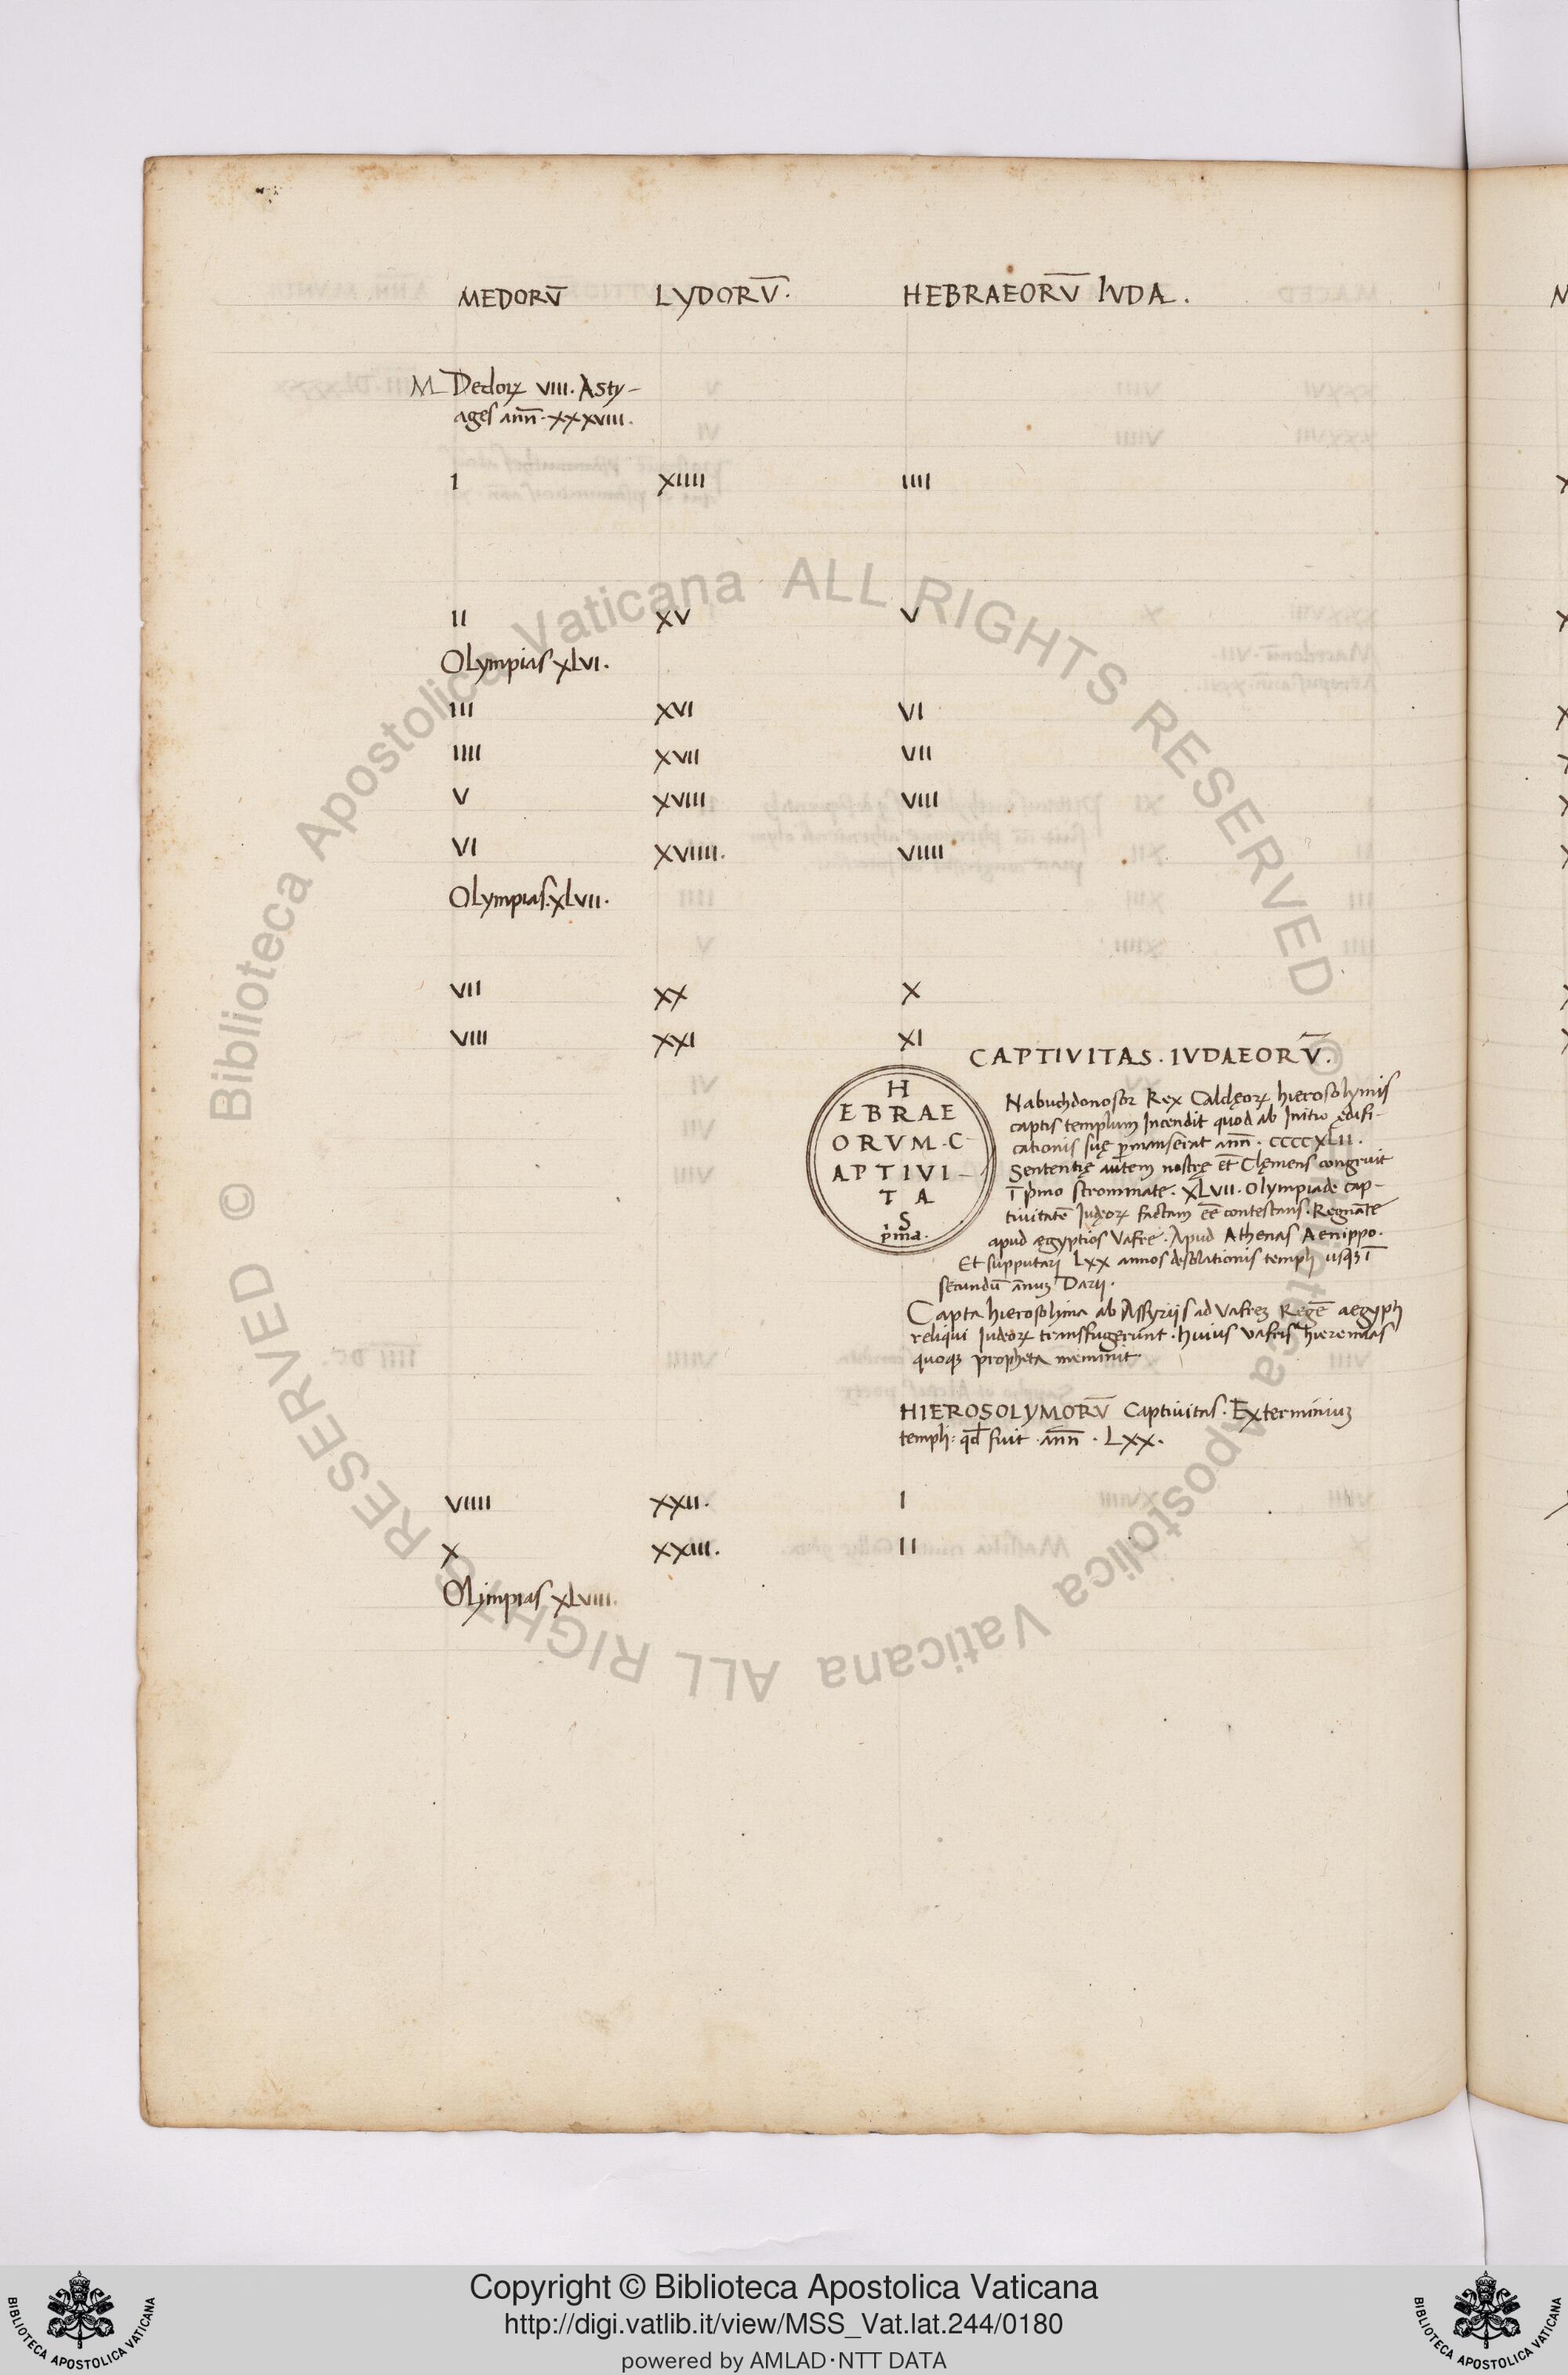 MEDORV̄ LYDORV̄. HEBRAEORV̄ IVDA.
M Dedorꝝ VIII. Asty-
ages ann̄. XXXVIII.
I XIIII IIII
II XV V
Olympias XLVI.
III XVI VI
IIII XVII VII
V XVIII VIII
VI XVIIII. VIIII
Olympias. XLVII.
VII XX X
VIII XXI XI
CAPTIVITAS. IVDAEORV̄.
H
EBRAE
ORVM. C
APTIVI-
TA
S
p̄ma.
Nabuchdonosor Rex Caldęorꝝ hierosolymis
captis templum Incendit quod ab Initio ędifi-
cationis suę ꝑmanserat ann̄. CCCCXLII.
Sententię autem nostrę et̄ Clęmens congruit
ī p̄mo strommate. XLVII. Olympiade cap-
tiuitatē Judęorꝝ factam eē contestans. Regnāte
apud ęgyptios Vafre. Apud Athenas Aenippo.
Et supputari LXX annos desolationis templi usqꝫ ī
secundū annuꝫ Darii.
Capta hierosolima ab Assyriis ad Vafreꝫ Regē aegypti
reliqui Iudeorꝝ transfugerunt. huius vafris hieremias
quoqꝫ propheta meminit.
HIEROSOLYMORV̄ Captiuitas. Exterminiuꝫ
templi: qd̄ fuit. ann̄. LXX.
VIIII XXII. I
X XXIII. II
Olimpias XLVIII.
© Biblioteca Apostolica Vaticana ALL RIGHTS RESERVED
© Biblioteca Apostolica Vaticana ALL RIGHTS RESERVED
Copyright © Biblioteca Apostolica Vaticana
http://digi.vatlib.it/view/MSS_Vat.lat.244/0180
powered by AMLAD·NTT DATA
BIBLIOTECA APOSTOLICA VATICANA
BIBLIOTECA APOSTOLICA VATICANA